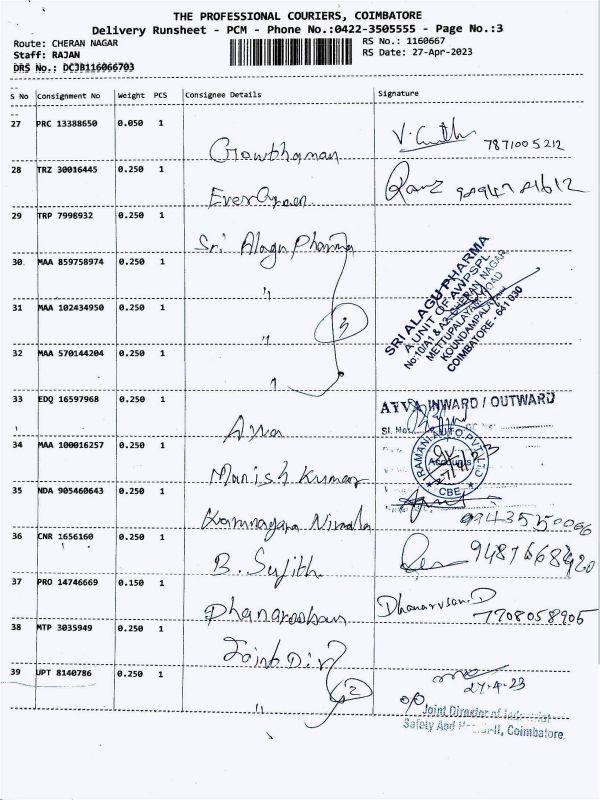 THE PROFESSIONAL COURIERS, COIMBATORE
Delivery Runsheet - PCM - Phone No.:0422-3505555 - Page No.:3
Route: CHERAN NAGAR RS No.: 1160667
Staff: RAJAN RS Date: 27-Apr-2023
DRS No.: DCJB116066703
S No Consignment No Weight PCS Consignee Details Signature
27 PRC 13388650 0.050 1
Gowbhaman 7871005212
28 TRZ 30016445 0.250 1
EverGreen
29 TRP 7998932 0.250 1
Sri Alagu Pharma
30 MAA 859758974 0.250 1
"
31 MAA 102434950 0.250 1
" 3
32 MAA 570144204 0.250 1
"
SRI ALAGU PHARMA
A UNIT OF AWPSPL.
No:10/A1 & A2, CHERAN NAGAR
METTUPALAYAM ROAD
KOUNDAMPALAYAM
COIMBATORE - 641 030
33 EDQ 16597968 0.250 1
AYYA INWARD / OUTWARD
Sl. No.
Ayya
34 MAA 100016257 0.250 1
RAMANI AUTO PVT LTD
Accounts
CBE
27/4/23
Manish Kumar
35 NDA 905460643 0.250 1
Nirmala 9943550066
36 CNR 1656160 0.250 1
B. Sujith 9487668420
37 PRO 14746669 0.150 1
Dhanarooban Dhanarvsan.D
7708058905
38 MTP 3035949 0.250 1
Joint Dir
39 UPT 8140786 0.250 1
2 27-4-23
"
Joint Director of Industrial
Safety And Health-II, Coimbatore.